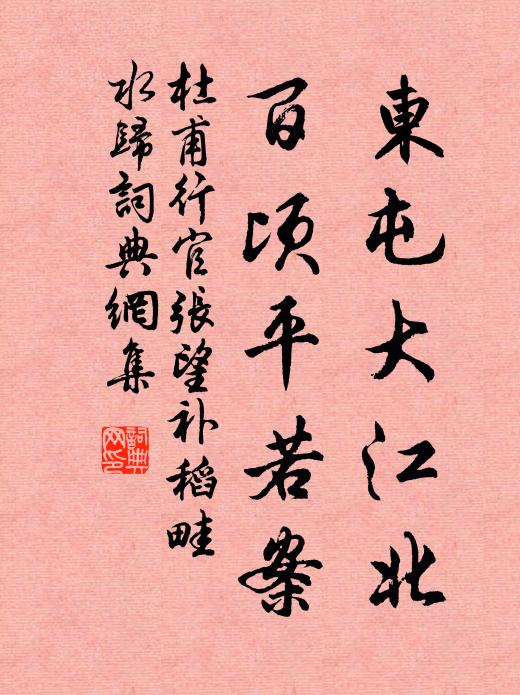 東屯大江北
百頃平若案
杜甫行官張望补稻畦
水歸詞典網集
詞典
网印